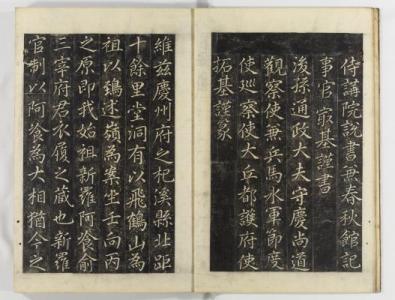 侍講院說書兼春秋館記
事官 㝡基謹書
後孫通政大夫守慶尚道
觀察使兼兵馬水軍節度
使巡察使大丘都護府使
拓基謹篆
維茲慶州府之杞溪縣北距
十餘里堂洞有以飛鶴山為
祖以鵄述嶺為案坐壬向丙
之原即我始祖新羅阿飡俞
三宰府君衣履之藏也新羅
官制以阿飡為大相猶今之